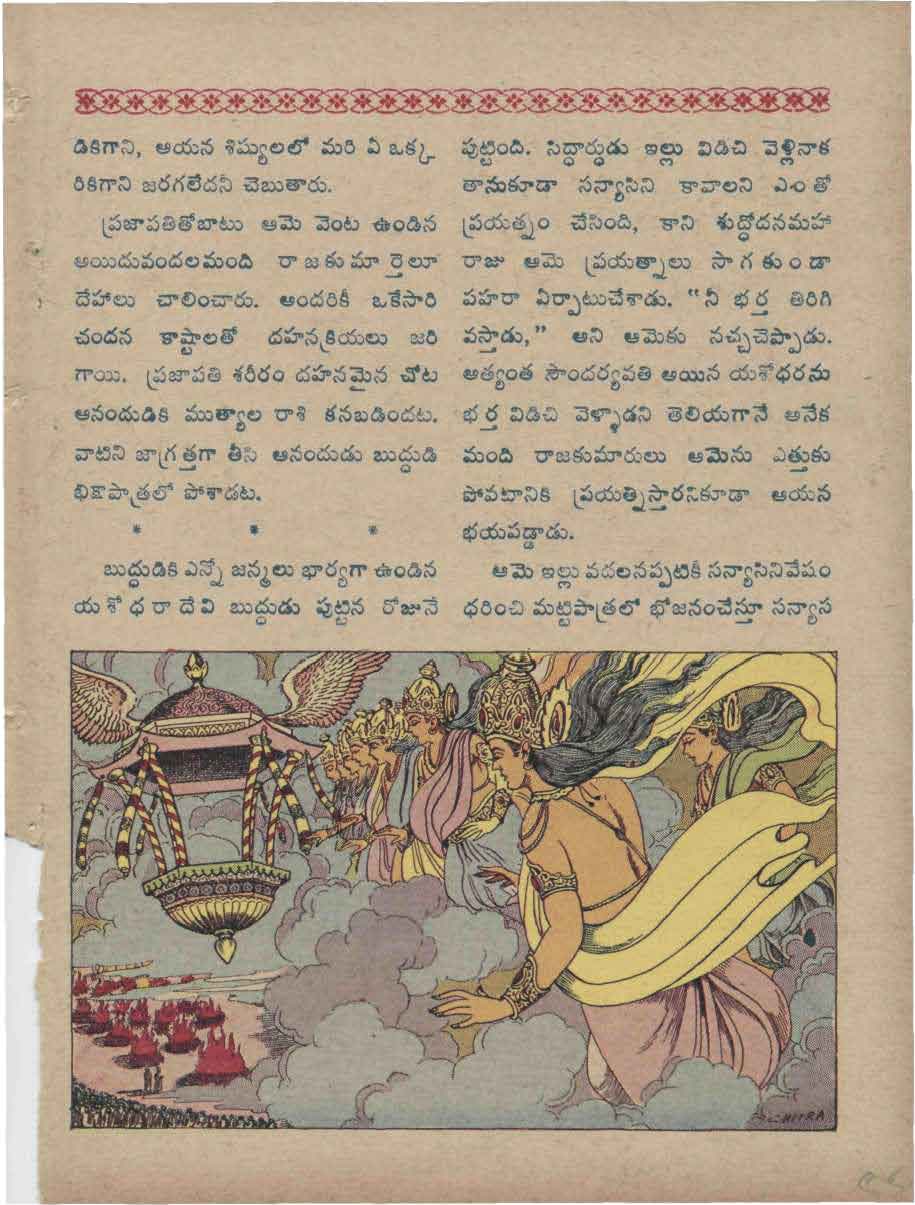 డికిగాని, ఆయన శిష్యులలో మరి ఏ ఒక్క
రికిగాని జరగలేదని చెబుతారు.
ప్రజాపతితోబాటు ఆమె వెంట ఉండిన
అయిదువందలమంది రాజకుమార్తెలూ
దేహాలు చాలించారు. అందరికీ ఒకేసారి
చందన కాష్టాలతో దహనక్రియలు జరి
గాయి. ప్రజాపతి శరీరం దహనమైన చోట
ఆనందుడికి ముత్యాల రాశి కనబడిందట.
వాటిని జాగ్రత్తగా తీసి ఆనందుడు బుద్ధుడి
భిక్షాపాత్రలో పోశాడట.
* * *
బుద్ధుడికి ఎన్నో జన్మలు భార్యగా ఉండిన
యశోధరాదేవి బుద్ధుడు పుట్టిన రోజునే
పుట్టింది. సిద్ధార్థుడు ఇల్లు విడిచి వెళ్లినాక
తానుకూడా సన్యాసిని కావాలని ఎంతో
ప్రయత్నం చేసింది, కాని శుద్ధోదనమహా
రాజు ఆమె ప్రయత్నాలు సాగకుండా
పహరా ఏర్పాటుచేశాడు. "నీ భర్త తిరిగి
వస్తాడు," అని ఆమెకు నచ్చచెప్పాడు.
అత్యంత సౌందర్యవతి అయిన యశోధరను
భర్త విడిచి వెళ్ళాడని తెలియగానే అనేక
మంది రాజకుమారులు ఆమెను ఎత్తుకు
పోవటానికి ప్రయత్నిస్తారనికూడా ఆయన
భయపడ్డాడు.
ఆమె ఇల్లు వదలనప్పటికీ సన్యాసినివేషం
ధరించి మట్టిపాత్రలో భోజనంచేస్తూ సన్యాస
CHITRA